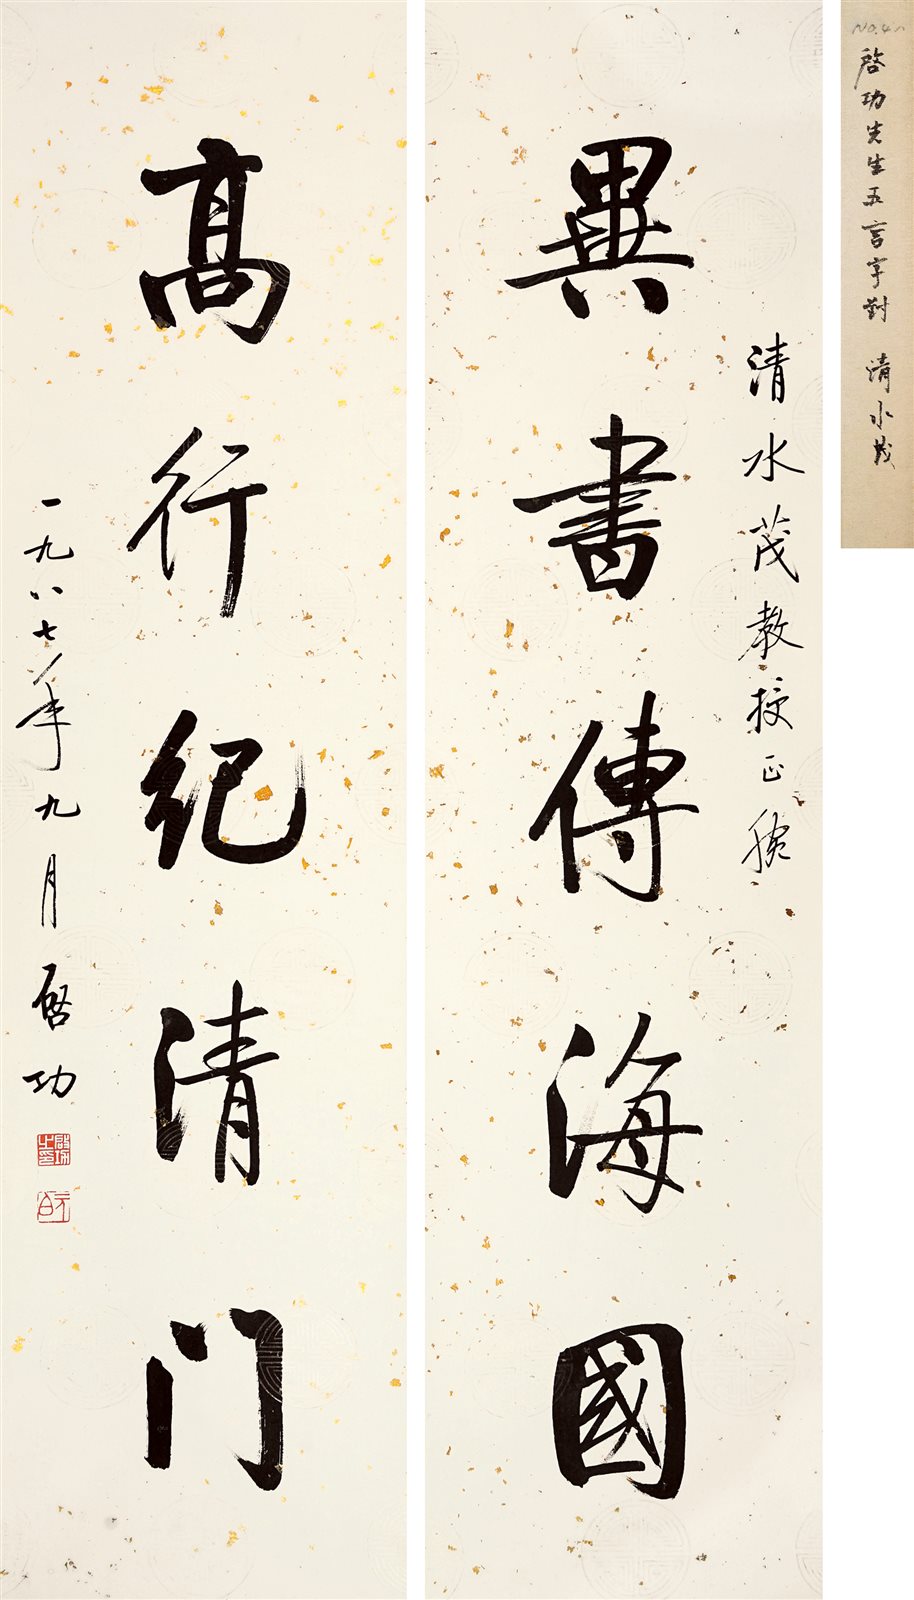 啓功先生五言字對 清水茂
清水茂教授正腕
異書傳海國
高行紀清门
一九八七年九月 启功
啓功之印
元白